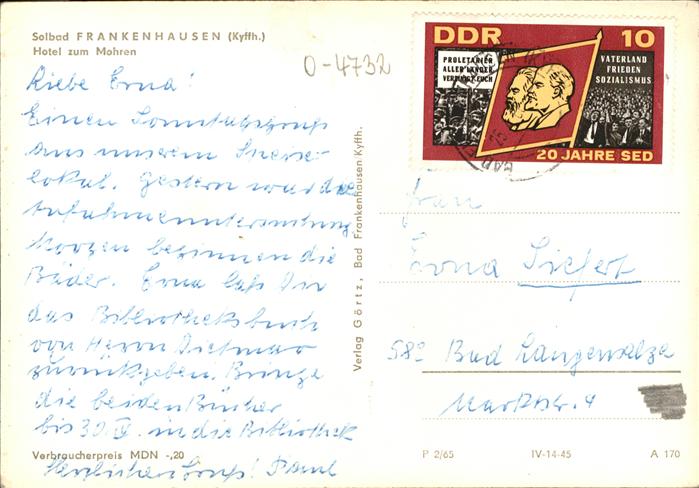 Solbad FRANKENHAUSEN (Kyffh.)
Hotel zum Mohren
O-4732
Liebe Erna!
Einen Sonntagsgruß
aus unserem Speise-
lokal. Gestern war die
Aufnahmeuntersuchung
Morgen beginnen die
Bäder. Erna laß Dir
das Bibliotheksbuch
von Herrn Dietmar
zurückgeben. Bringe
die beiden Bücher
bis 30. in die Bibliothek
Herzlichen Gruß! Paul
Verbraucherpreis MDN -,20
Verlag Görtz, Bad Frankenhausen Kyffh.
DDR 10
PROLETARIER
ALLER LÄNDER
VEREINIGT EUCH
VATERLAND
FRIEDEN
SOZIALISMUS
20 JAHRE SED
Frau
Erna Siefert
582 Bad Langensalza
Marktstr. 4
P 2/65 IV-14-45 A 170